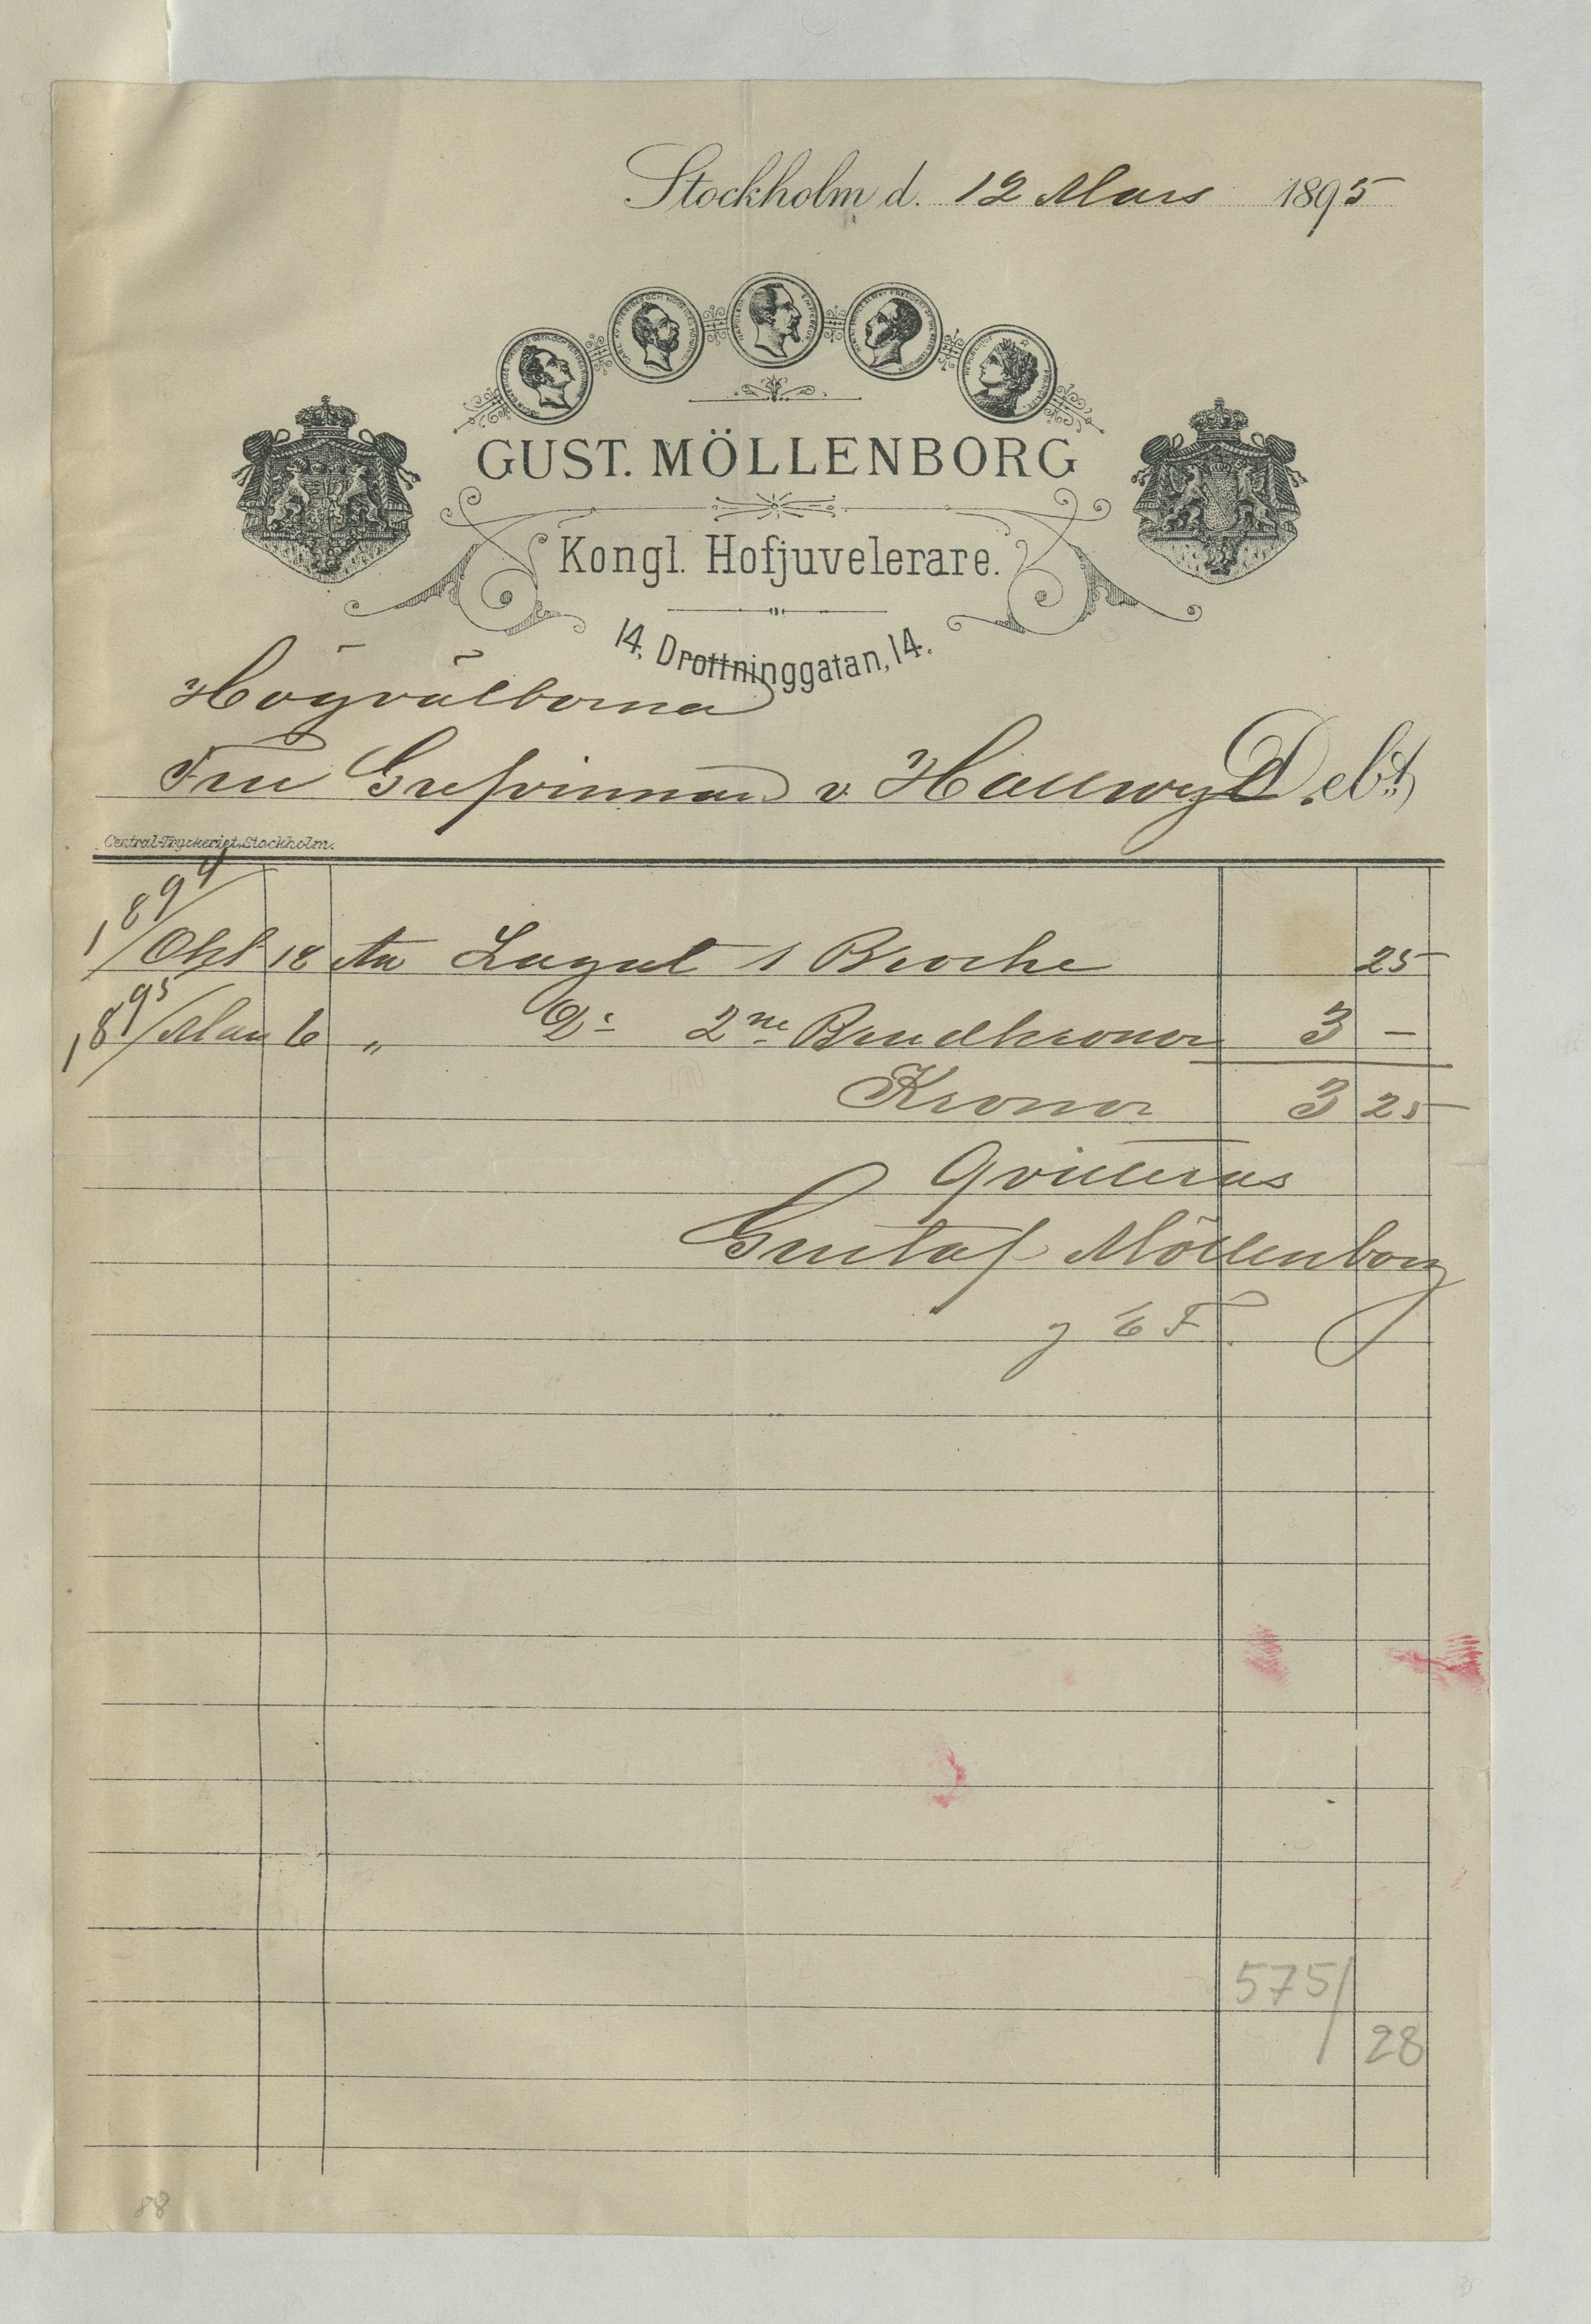 Stockholm d. 12 Mars 1895
GUST. MÖLLENBORG
Kongl. Hofjuvelerare.
14, Drottninggatan, 14.
Högvälborna
Fru Grefvinnan v. Hallwyl Debt.
Central-Tryckeriet, Stockholm.
1894
Okt 18 An Lagat 1 Broche 25
1895
Mars 6 " Do 2ne Brudkronor 3 –
Kronor 3 25
Qvitteras
Gustaf Möllenborg
575/
28
88